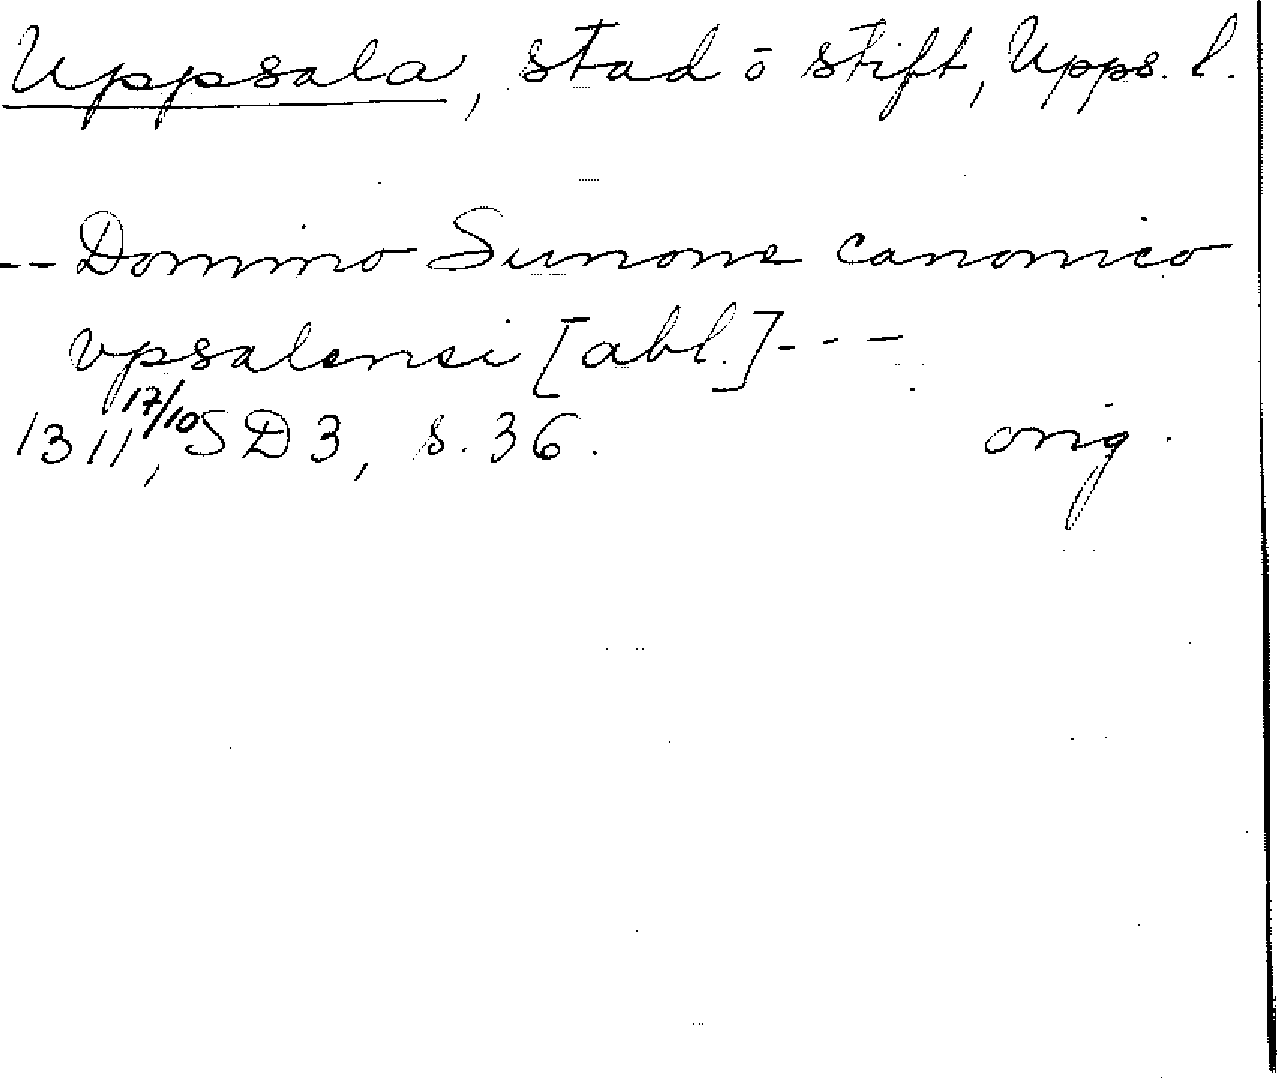 Uppsala, stad o stift, Upps. l.
-- Domino Sunone canonico
vpsalensi [abl.] ---
1311 17/10, SD 3, s. 36. orig.